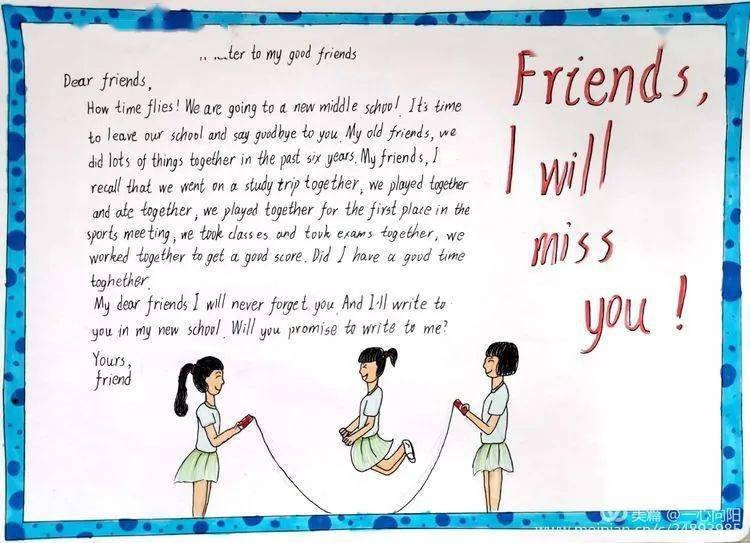 to my good friends
Dear friends,
How time flies! We are going to a new middle school. It's time
to leave our school and say goodbye to you. My old friends, we
did lots of things together in the past six years. My friends, I
recall that we went on a study trip together, we played together
and ate together, we played together for the first place in the
sports meeting, we took classes and took exams together, we
worked together to get a good score. Did I have a good time
toghether.
My dear friends I will never forget you. And I'll write to
you in my new school. Will you promise to write to me?
Yours,
friend
Friends,
I will
miss
you!
美篇 @一心向阳
www.meipian.cn/c/24893985